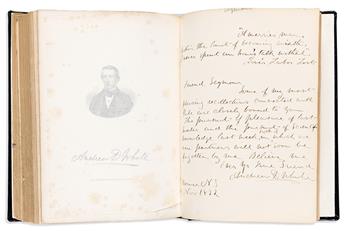 Andrew D White
Seymour
"A merrier man,
Within the limit of becoming mirth,
I never spent an hour's talk withal."
Love's Labor Lost
Friend Seymour
Some of my most
pleasing recollections connected with
Yale are closely bound to you.
The "pursuit of pleasure" of last
year and the "pursuit of
knowledge" last week in which we
were partners will not soon be
forgotten by me. Believe me
Ever Yr true Friend
Andrew D. White
N.Y.